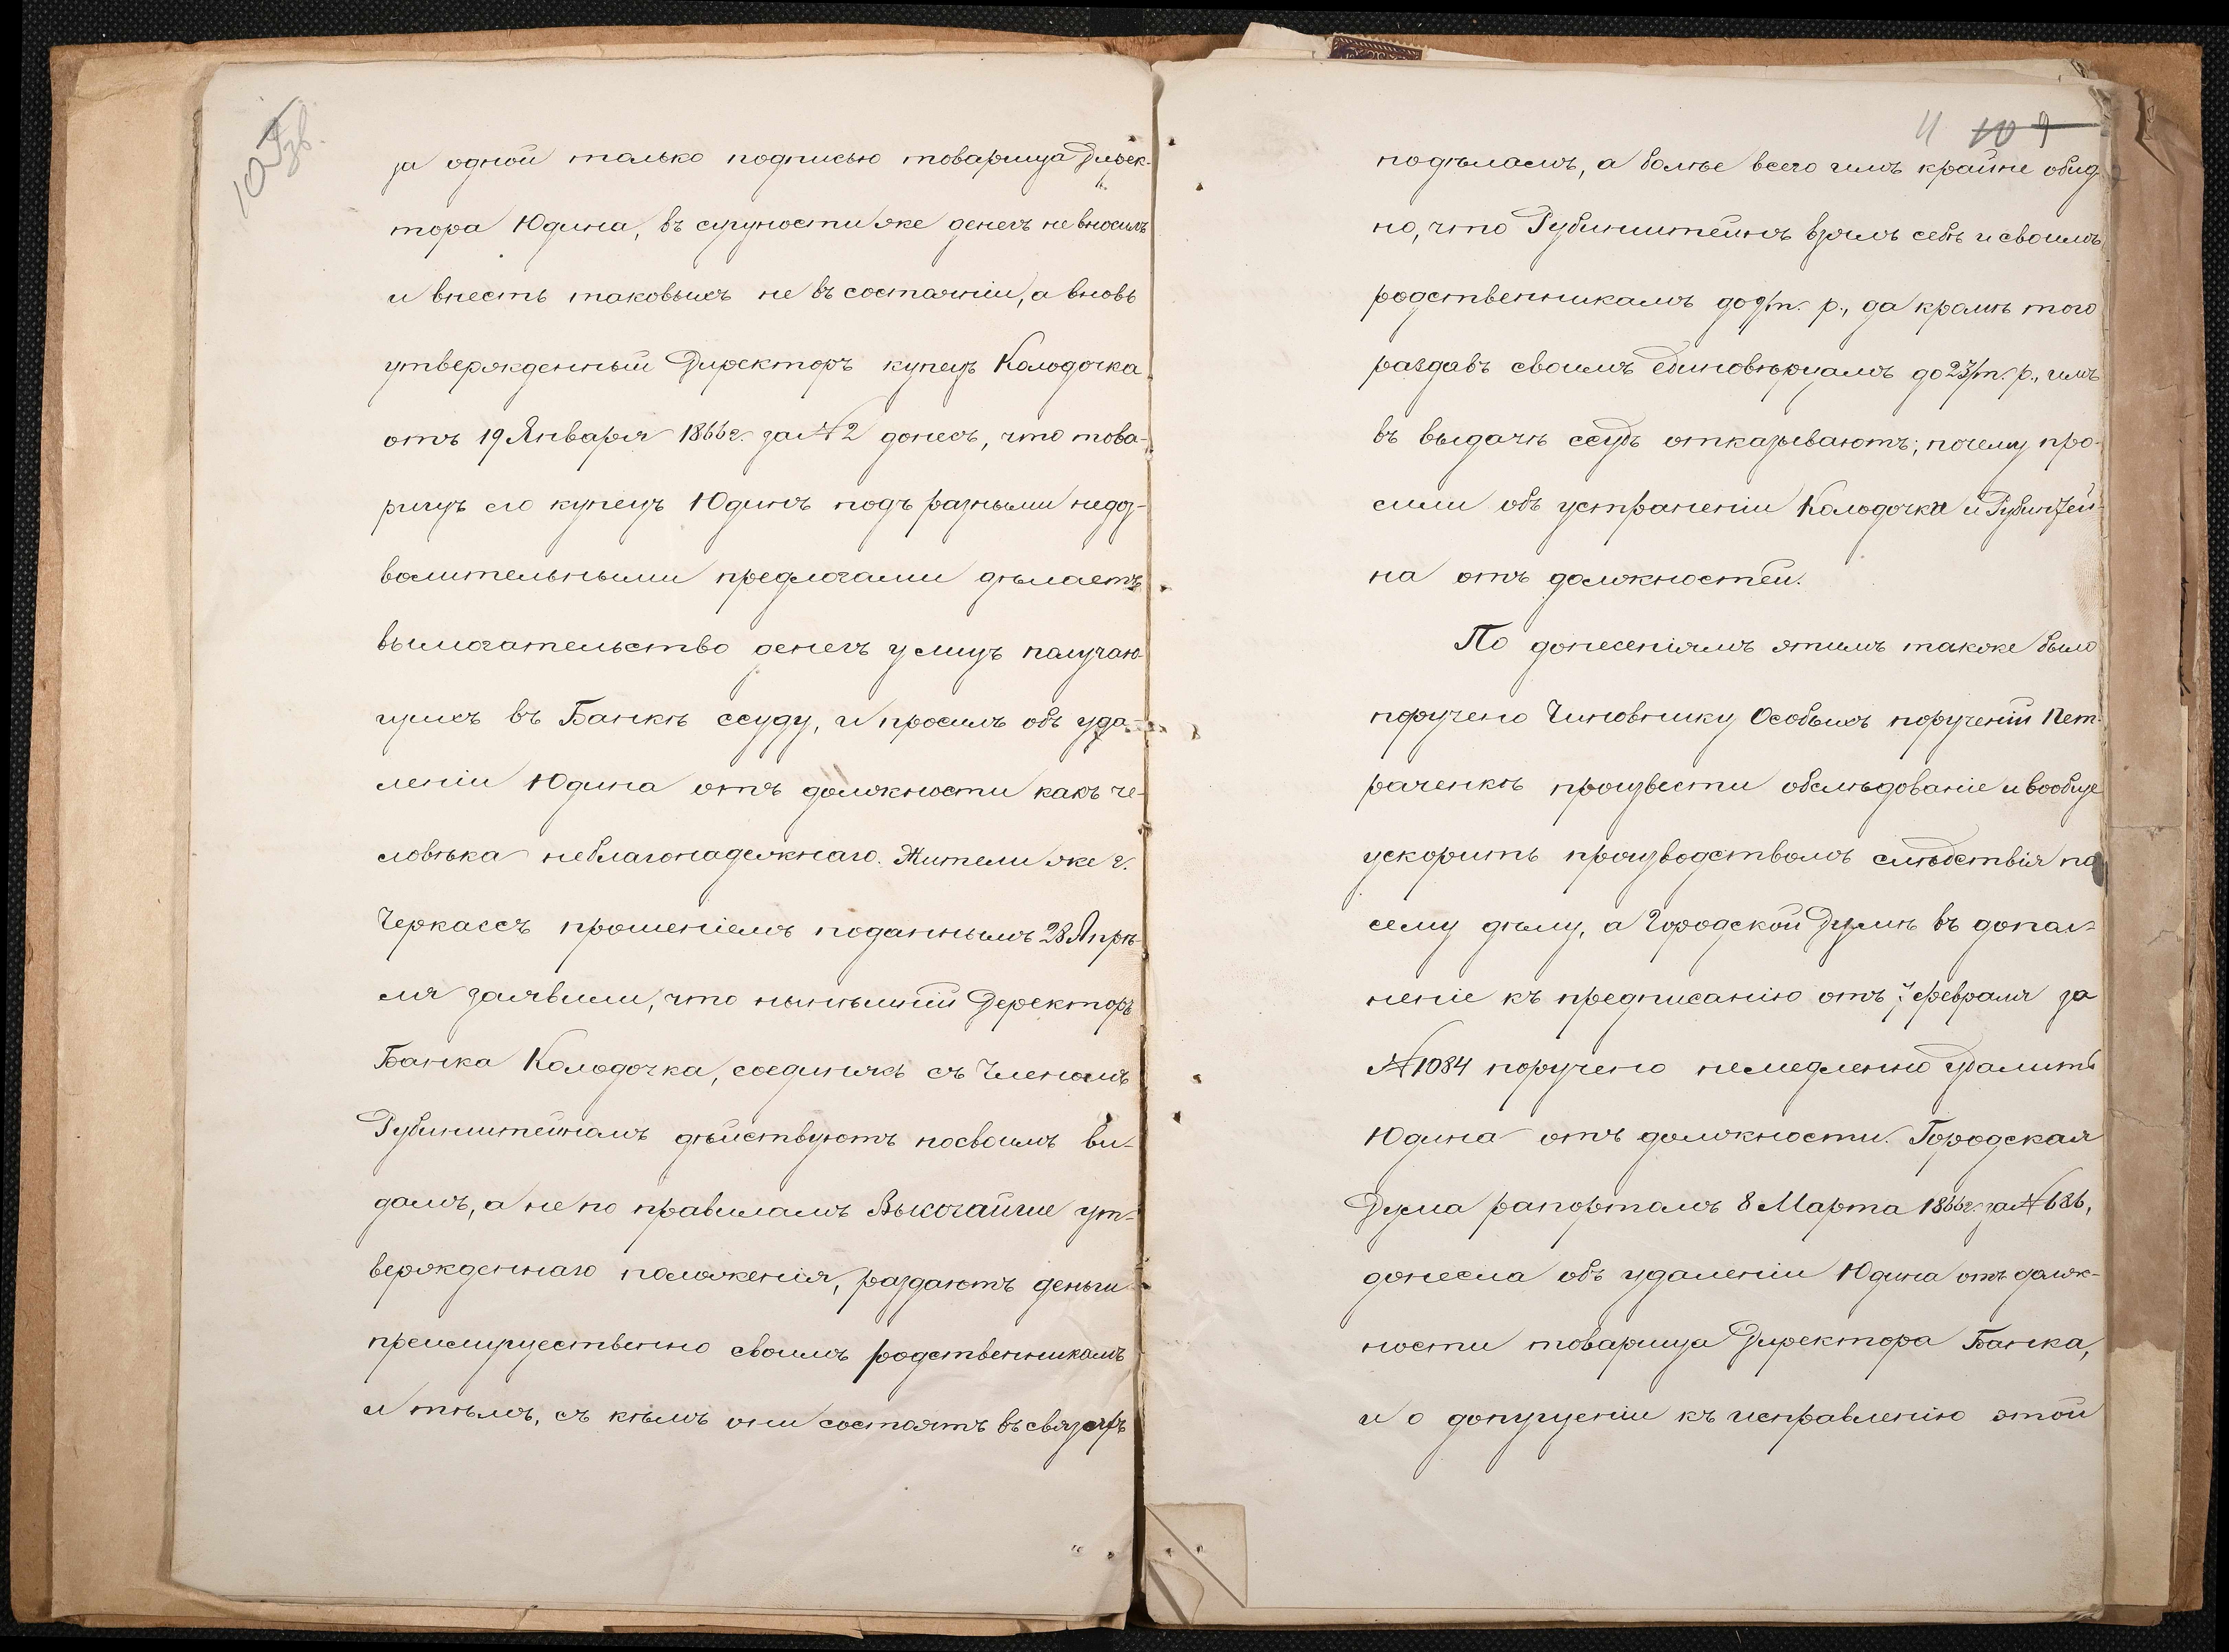 за одной только подписью товарища Дирек-
тора Юдина, въ сущности же денегъ не вносилъ
и внесть таковыхъ не въ состояніи, а вновь
утвержденный Директоръ купецъ Колодочка
отъ 19 Января 1866 г. за № 2 донесъ, что това-
рищъ его купецъ Юдинъ подъ разными недоз-
волительными предлогами дѣлаетъ
вымогательство денегъ у лицъ получаю-
щихъ въ Банкѣ ссуду, и просилъ объ уда-
леніи Юдина отъ должности какъ че-
ловѣка неблагонадежнаго. Жители же г.
Черкассъ прошеніемъ поданнымъ 28 Апрѣ-
ля заявили, что нынѣшній Деректоръ
Банка Колодочка, соединясь съ Членомъ
Рубинштейномъ дѣйствуютъ по своимъ ви-
дамъ, а не по правиламъ Высочайше ут-
вержденнаго положенія, раздаютъ деньги
преимущественно своимъ родственникамъ
и тѣмъ, съ кѣмъ они состоятъ въ связяхъ
11 10 9
по дѣламъ, а болѣе всего имъ крайне обид-
но, что Рубинштейнъ взялъ себѣ и своимъ
родственникамъ до 9/т. р., да кромѣ того
раздавъ своимъ единовѣрцамъ до 23/т. р., имъ
въ выдачѣ ссудъ отказываютъ; почему про-
сили объ устраненіи Колодочки и Рубинштей-
на отъ должностей.
По донесеніямъ этимъ также было
поручено Чиновнику Особыхъ порученій Пет-
раченкѣ произвести обслѣдованіе и вообще
ускорить производствомъ слѣдствія по
сему дѣлу, а Городской Думѣ въ допол-
неніе къ предписанію отъ февраля за
№ 1084 поручено немедленно удалить
Юдина отъ должности. Городская
Дума рапортомъ 8 Марта 1866 г. за № 686,
донесла объ удаленіи Юдина отъ долж-
ности товарища Директора Банка,
и о допущеніи къ исправленію этой